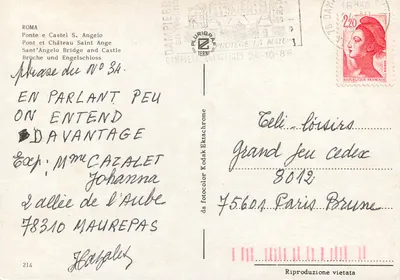 ROMA
Ponte e Castel S. Angelo
Pont et Château Saint Ange
Sant'Angelo Bridge and Castle
Brücke und Engelschloss
Phrase du N° 34.
EN PARLANT PEU
ON ENTEND
DAVANTAGE
Exp: Mme CAZALET
Johanna
2 allée de l'Aube
78310 MAUREPAS
JCazalet
214
PLURIGRAF
TERNI
da fotocolor Kodak Ektachrome
2,20
REPUBLIQUE FRANÇAISE
Téli-loisirs
Grand Jeu Cedex
3012
75601 Paris Brune
Riproduzione vietata